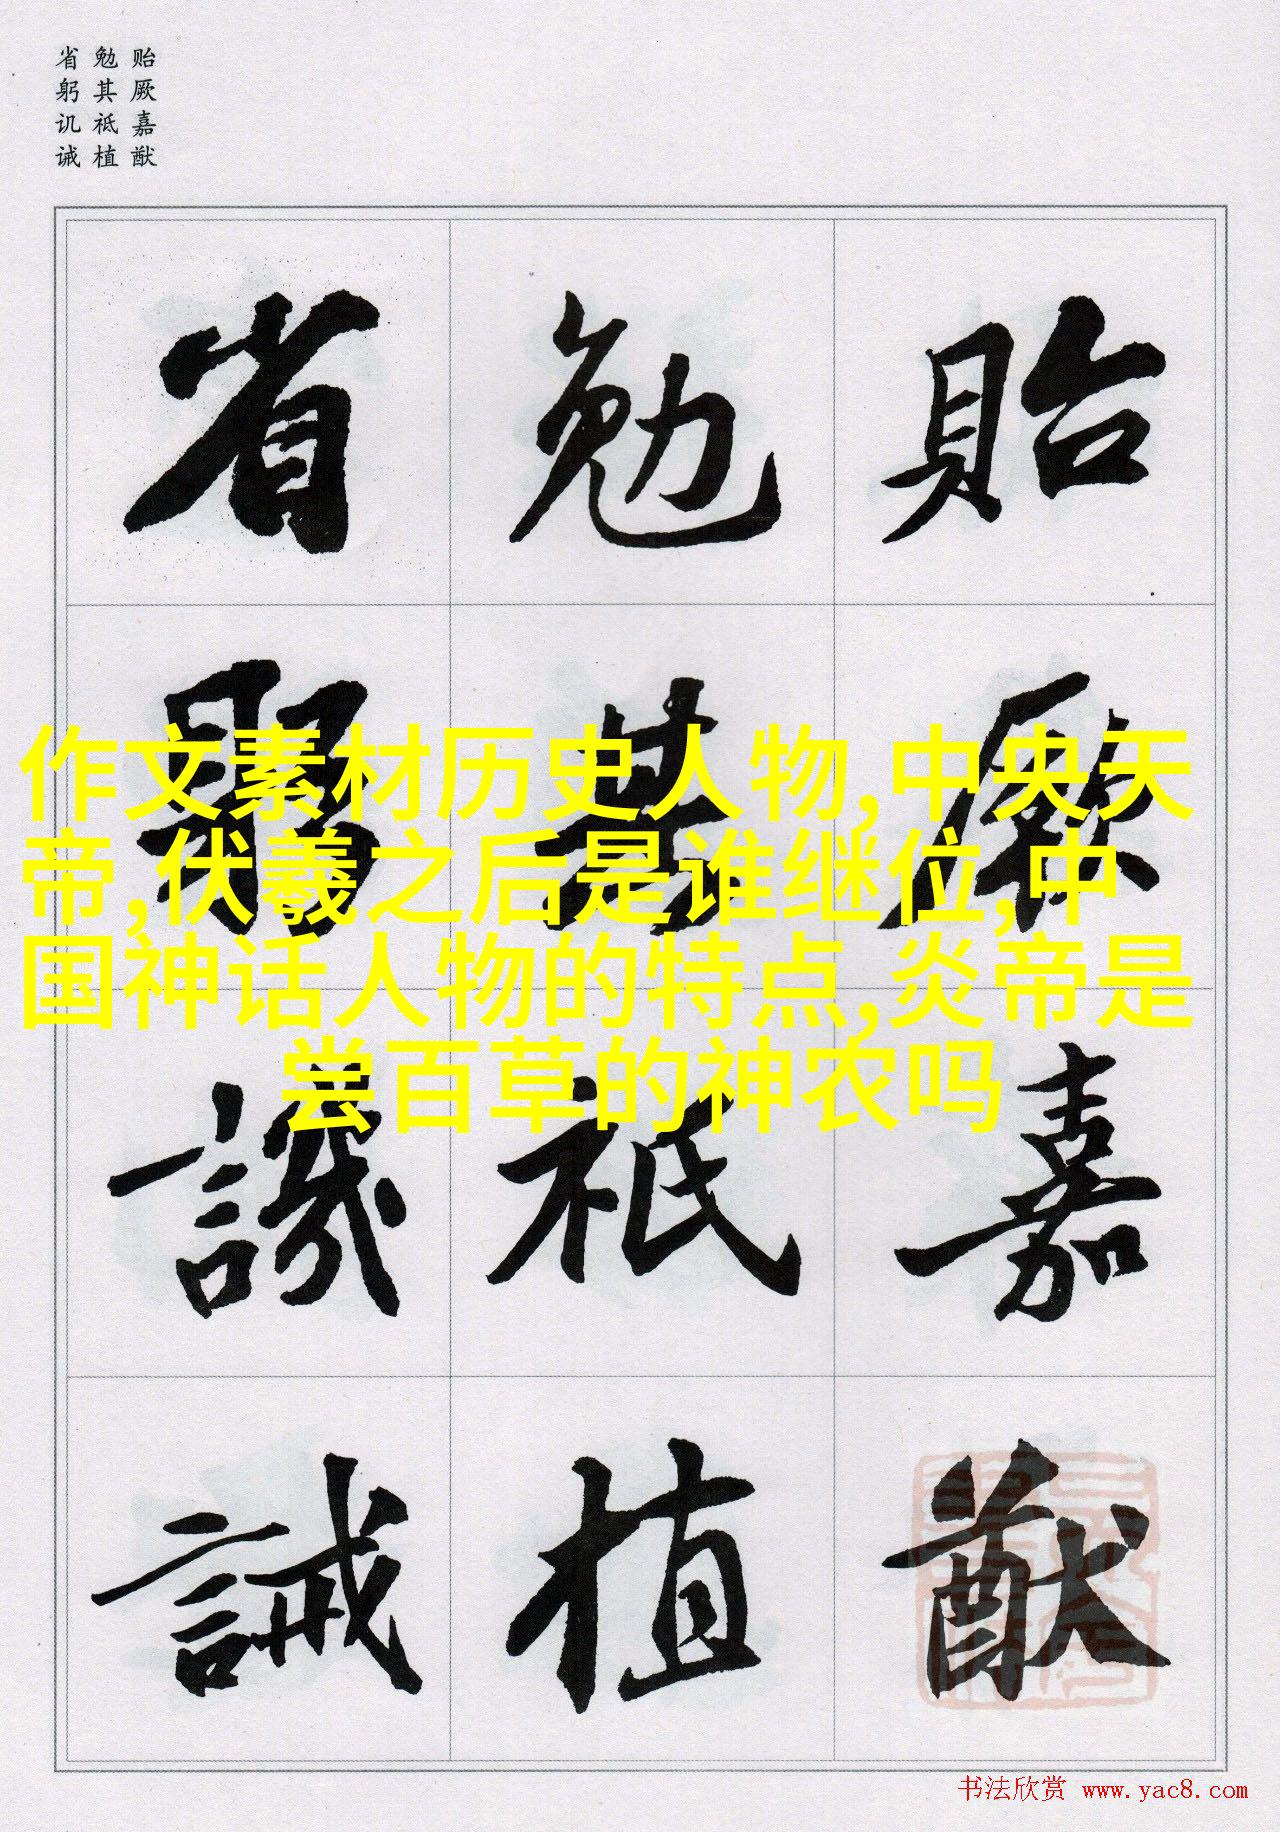 贻厥嘉猷
勉其祗植
省躬讥诫
貽厥嘉猷
勉其祗植
省躬譏誡
作文素材历史人物,中央天
帝,伏羲之后是谁继位,中
国神话人物的特点,炎帝是
尝百草的神农吗
书法欣赏 www.yac8.com